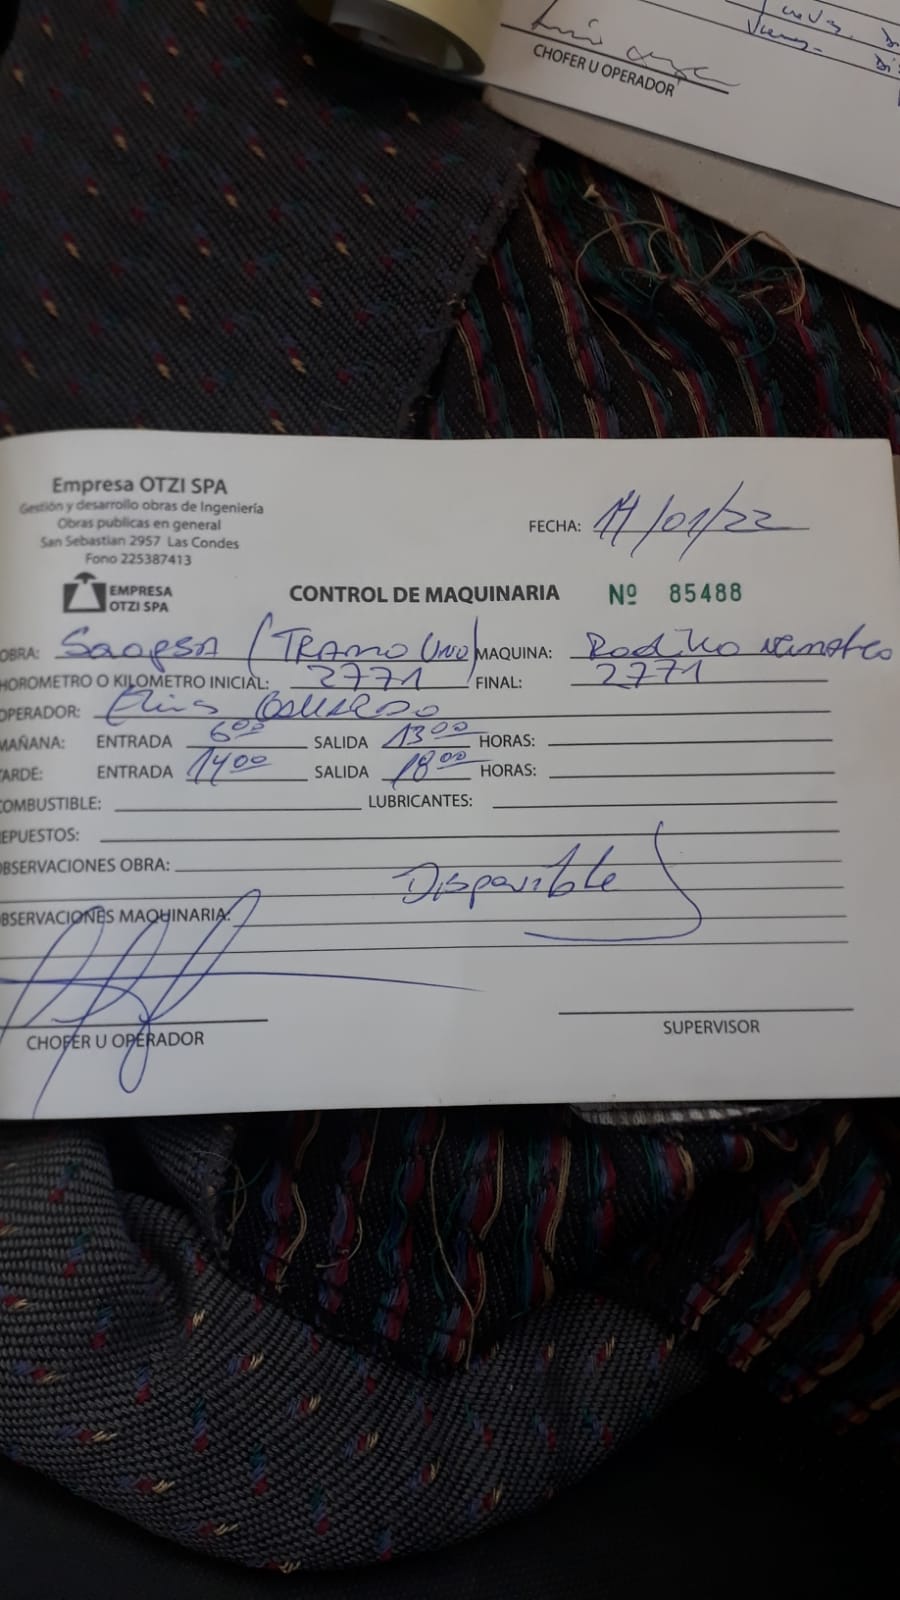 CHOFER U OPERADOR
Empresa OTZI SPA
Gestión y desarrollo obras de Ingeniería
Obras publicas en general
San Sebastian 2957 Las Condes
Fono 225387413
EMPRESA
OTZI SPA
FECHA: 11/01/22
CONTROL DE MAQUINARIA Nº 85488
OBRA: (TRAMO UNO) MAQUINA: Rodillo
HOROMETRO O KILOMETRO INICIAL: 2771 FINAL: 2771
OPERADOR:
MAÑANA: ENTRADA 6:00 SALIDA 13:00 HORAS:
TARDE: ENTRADA 14:00 SALIDA 18:00 HORAS:
COMBUSTIBLE: LUBRICANTES:
REPUESTOS:
OBSERVACIONES OBRA:
Disponible
OBSERVACIONES MAQUINARIA:
CHOFER U OPERADOR
SUPERVISOR